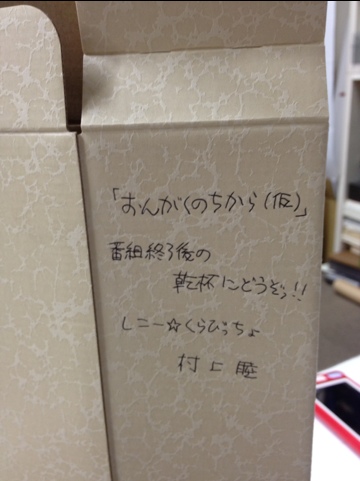 「おんがくのちから(仮)」
番組終了後の
乾杯にどうぞっ!!
レニー☆くらびっちょ
村上